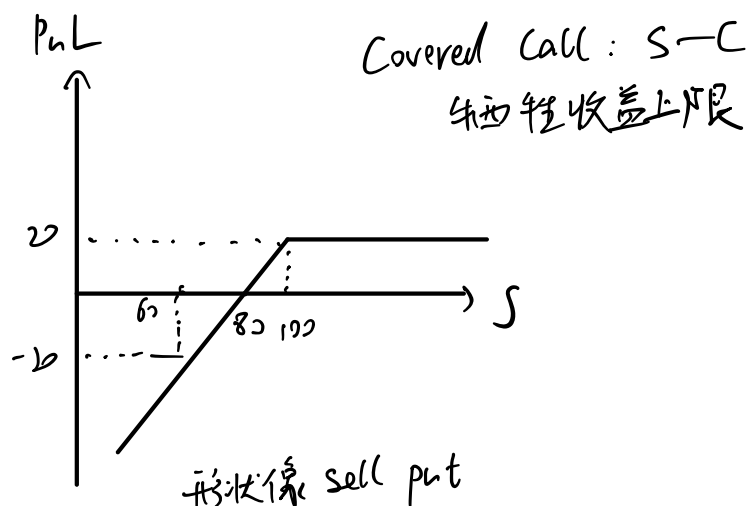 PnL
Covered Call : S-C
牺牲收益上限
20
60
80 100
S
-20
形状像 sell put